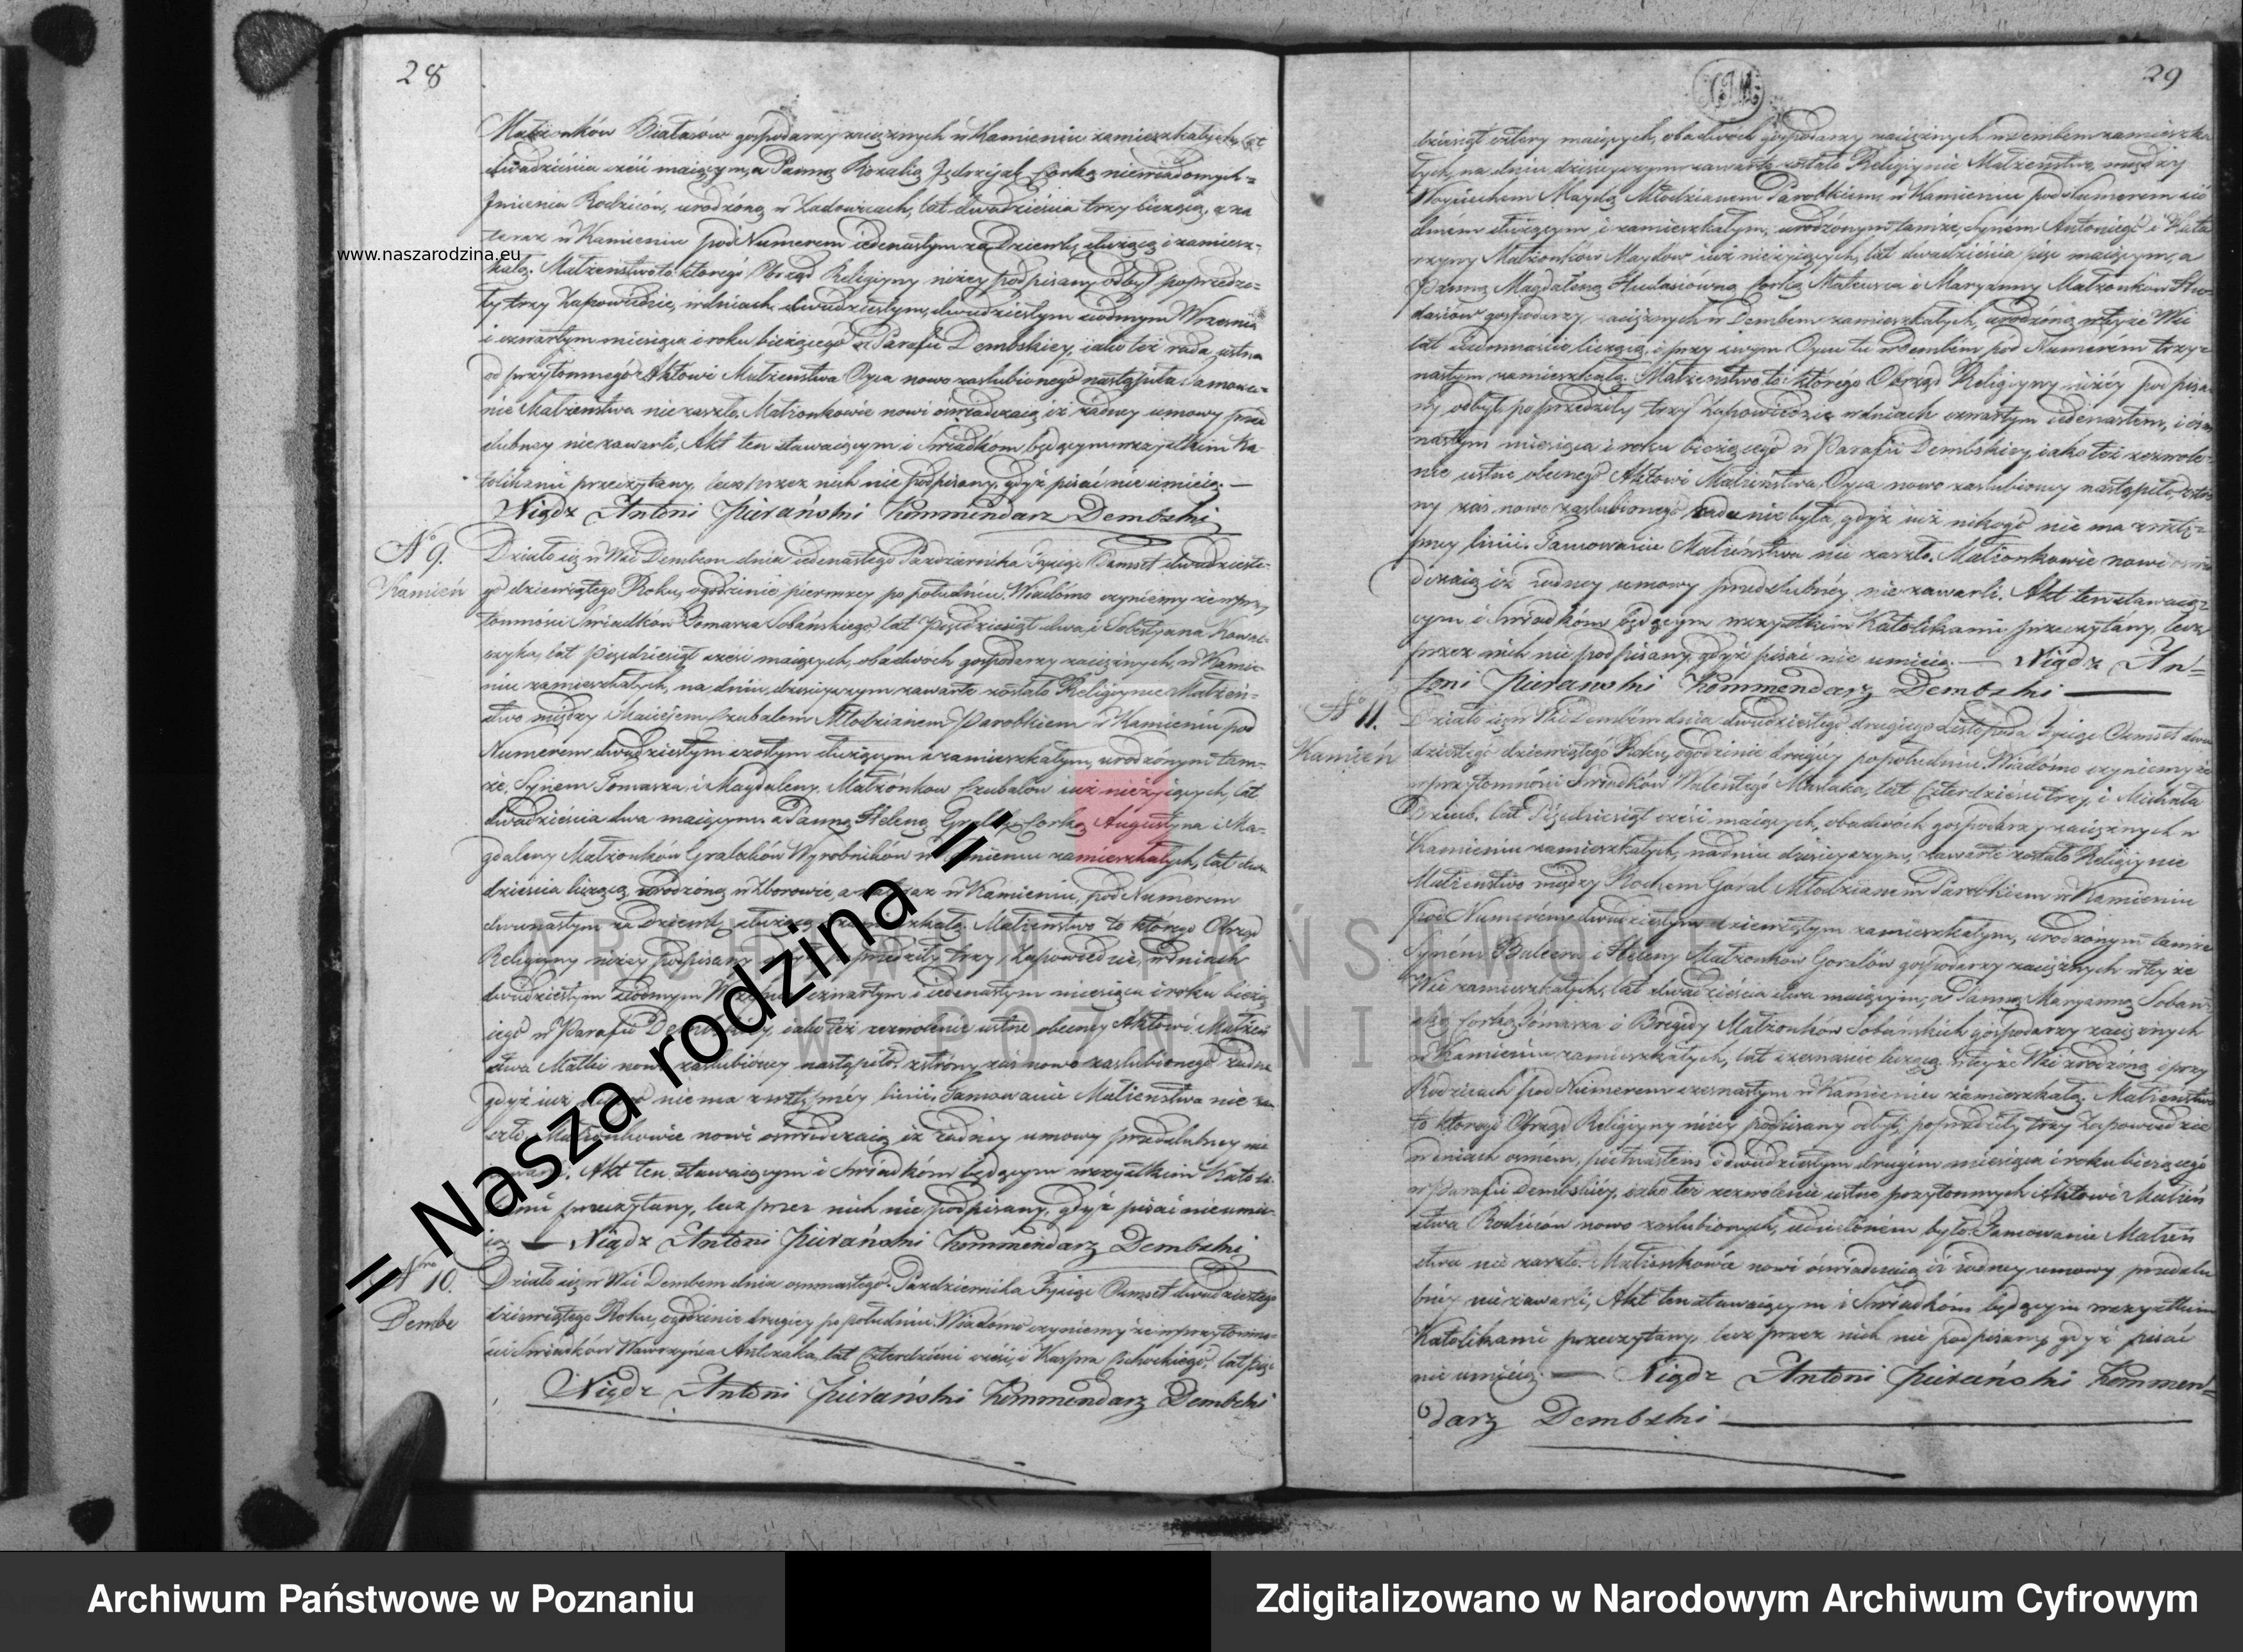 28
Małżonków Białasów gospodarzy zaciężnych w Kamieniu zamieszkałych, lat
dwadzieścia sześć maiącym, a Panną Rozalią Jędrzejak Corką niewiadomych
Jmienia Rodziców, urodzoną w Zadowicach, lat dwadzieścia trzy liczącą, a za
teraz w Kamieniu pod Numerem iedenastym za Dziewkę służącą i zamiesz-
kałą. Małżeństwo to którego Obrząd Religiyny niżey podpisany odbył poprzedzi-
ły trzy Zapowiedzie, w dniach dwudziestym, dwudziestym siodmym Wrzesnia
i czwartym miesiąca i roku bieżącego w Parafii Dembskiey, iako też rada ustna
od przytomnego Aktowi Małżeństwa Oyca nowo zaślubionego nastąpiła. Tamowa-
nie Małżeństwa nie zaszło. Małżonkowie nowi oświadczaią iż żadney umowy przed
ślubney nie zawarli, Akt ten stawaiącym i Świadkom będącym wszystkim Ka-
tolikami przeczytany, lecz przez nich nie podpisany, gdyż pisać nie umieią. —
Xiądz Antoni Kommendarz Dembski
No 9.
Kamień
Działo się w Wsi Dembem dnia iedenastego Pazdziernika Tysiąc Osmset dwudzieste-
go dziewiątego Roku, o godzinie pierwszey po południu. Wiadomo czyniemy że w przy
tomności Świadków Tomasza Sobańskiego, lat Pięćdziesiąt dwa i Sobestyana Kowal-
czyka, lat Pięćdziesiąt sześć maiących, obadwóch gospodarzy zaciężnych, w Kamie-
niu zamieszkałych, na dniu dzisieyszym zawarte zostało Religiynie Małżeń-
stwo między Macieiem Czubalem Młodzianem Parobkiem w Kamieniu pod
Numerem dwudziestym szostym służącym i zamieszkałym, urodzonym tam-
że, Synem Tomasza i Magdaleny Małżonkow Czubalow iuż nieżyiących, lat
dwadzieścia dwa maiącym, a Panną Heleną Corką Augustyna i Ma-
gdaleny Małżonków Gralaków Wyrobników w Kamieniu zamieszkałych, lat dwa
dzieścia liczącą urodzoną w Zborowie, a na teraz w Kamieniu, pod Numerem
dwunastym za Dziewkę służącą i zamieszkałą. Małżeństwo to którego Obrząd
Religiyny niżey podpisany odbył poprzedziły trzy Zapowiedzie, w dniach
dwudziestym siodmym Września czwartym i iedenastym miesiąca i roku bieżą
cego w Parafii Dembskiey, iako też zezwolenie ustne obecney Aktowi Małżeń
stwa Matki nowo zaślubioney nastąpiło, z strony zaś nowo zaślubionego żadne
gdyż iuż nikogo nie ma z wstępney linii. Tamowanie Małżeństwa nie za-
szło. Małżonkowie nowi oświadczaią iż żadney umowy przedslubney nie
zawarli. Akt ten stawaiącym i Świadkom będącym wszystkim Katoli-
kami przeczytany, lecz przez nich nie podpisany, gdyż pisać nie umie-
ią. — Xiądz Antoni Kommendarz Dembski
Nro 10.
Dembe
Działo się w Wsi Dembem dnia osmnastego Pazdziernika Tysiąc Osmset dwudziestego
dziewiątego Roku, o godzinie drugiey po południu. Wiadomo czyniemy że w przytomno-
ści Świadków Wawrzyńca Antczaka, lat Czterdzieści sześć, i Kaspra Cichockiego, lat pięć
Xiądz Antoni Kommendarz Dembski
29
dziesiąt cztery maiących, obadwoch gospodarzy zaciężnych w Dembem zamieszka-
łych, na dniu dzisieyszym zawarte zostało Religiynie Małżeństwo, między
Woyciechem Maydą Młodzianem Parobkiem, w Kamieniu pod Numerem sió
dmém służącym, i zamieszkałym, urodzonym tamże, Synem Antoniego i Kata-
rzyny Małżonków Maydow iuż nieżyiących, lat dwadzieścia pięć maiącym, a
Panną Magdaleną Hudasiówną Corką Mateusza i Maryanny Małżonków Hu-
dasiow gospodarzy zaciężnych w Dembem zamieszkałych, urodzoną w teyże Wsi
lat siedmnaście liczącą, i przy swym Oycu tu w Dembem pod Numerém trzy-
nastym zamieszkałą. Małżeństwo to którego Obrząd Religiyny niżey podpisa-
ny odbył poprzedziły trzy Zapowiedzie w dniach czwartym iedenastem, i ósm
nastym miesiąca i roku bieżącego w Parafii Dembskiey, iako też zezwole-
nie ustne obecnego Aktowi Małżeństwa, Oyca nowo zaślubioney nastąpiło, z stro
ny zaś nowo zaślubionego rada nie była, gdyż iuż nikogo nie ma z wstę-
pney linii. Tamowanie Małżeństwa nie zaszło. Małżonkowie nowi oswia
dczaią iż żadney umowy przedslubney nie zawarli. Akt ten stawaią-
cym i Świadkóm będącym wszystkim Katolikami przeczytany, lecz
przez nich nie podpisany, gdyż pisać nie umieią. — Xiądz An-
toni Kommendarz Dembski —
No 11.
Kamień
Działo się w Wsi Dembém dnia dwudziestego drugiego Listopada Tysiąc Osmset dwu
dziestego dziewiątego Roku, o godzinie drugiéy po południu. Wiadomo czyniemy że
w przytomności Świadków Walentego Maślaka, lat Czterdzieści trzy, i Michała
lat Pięćdziesiąt sześć maiących, obadwóch gospodarzy zaciężnych w
Kamieniu zamieszkałych, na dniu dzisieyszym, zawarte zostało Religiynie
Małżeństwo między Rochem Goral Młodzianem Parobkiem w Kamieniu
pod Numerém dwudziestym dziewiątym zamieszkałym, urodzonym tamże
Synem i Heleny Małżonków Goralów gospodarzy zaciężnych w teyże
Wsi zamieszkałych, lat dwadzieścia dwa maiącym, a Panną Maryanną Soban-
ską Corką Tomasza i Brygidy Małżonków Sobańskich gospodarzy zaciężnych
w Kamieniu zamieszkałych, lat szesnaście liczącą w teyże Wsi zrodzoną i przy
Rodzicach pod Numerem szesnastym w Kamieniu zamieszkałą. Małżeństwo
to którego Obrząd Religiyny niżey podpisany odbył, poprzedziły trzy Zapowiedzie
w dniach osmém, pietnastem i dwudziestym drugim miesiąca i roku bieżącego
w Parafii Dembskiéy, iako też zezwolenie ustne przytomnych Aktowi Małżeń
stwa Rodziców nowo zaślubionych, udzielonem było. Tamowanie Małżeń
stwa nie zaszło. Małżonkówie nowi oświadczaią iż żadney umowy przedslu
bnéy nie zawarli, Akt ten stawaiącym i Świadkóm będącym wszystkim
Katolikami przeczytany, lecz przez nich nie podpisany, gdyż pisać
nie umieią. — Xiądz Antoni Kommen-
darz Dembski —
www.naszarodzina.eu
-= Nasza rodzina ="
ARCHIWUM PAŃSTWOWE
W POZNANIU
Archiwum Państwowe w Poznaniu
Zdigitalizowano w Narodowym Archiwum Cyfrowym